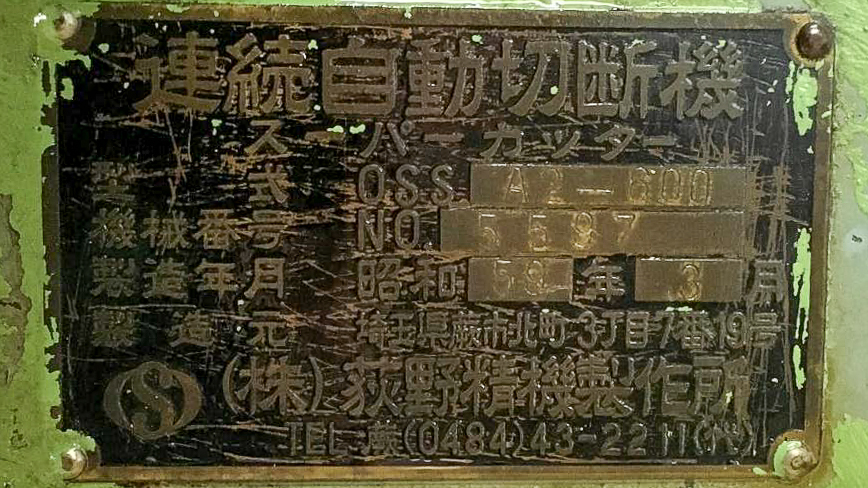 連続自動切断機
スーパーカッター
型式 OSS. A2-600
機械番号 NO. 5597
製造年月 昭和58年3月
製造元 埼玉県蕨市北町3丁目7番19号
(株)荻野精機製作所
TEL 蕨(0484)43-2211(代)